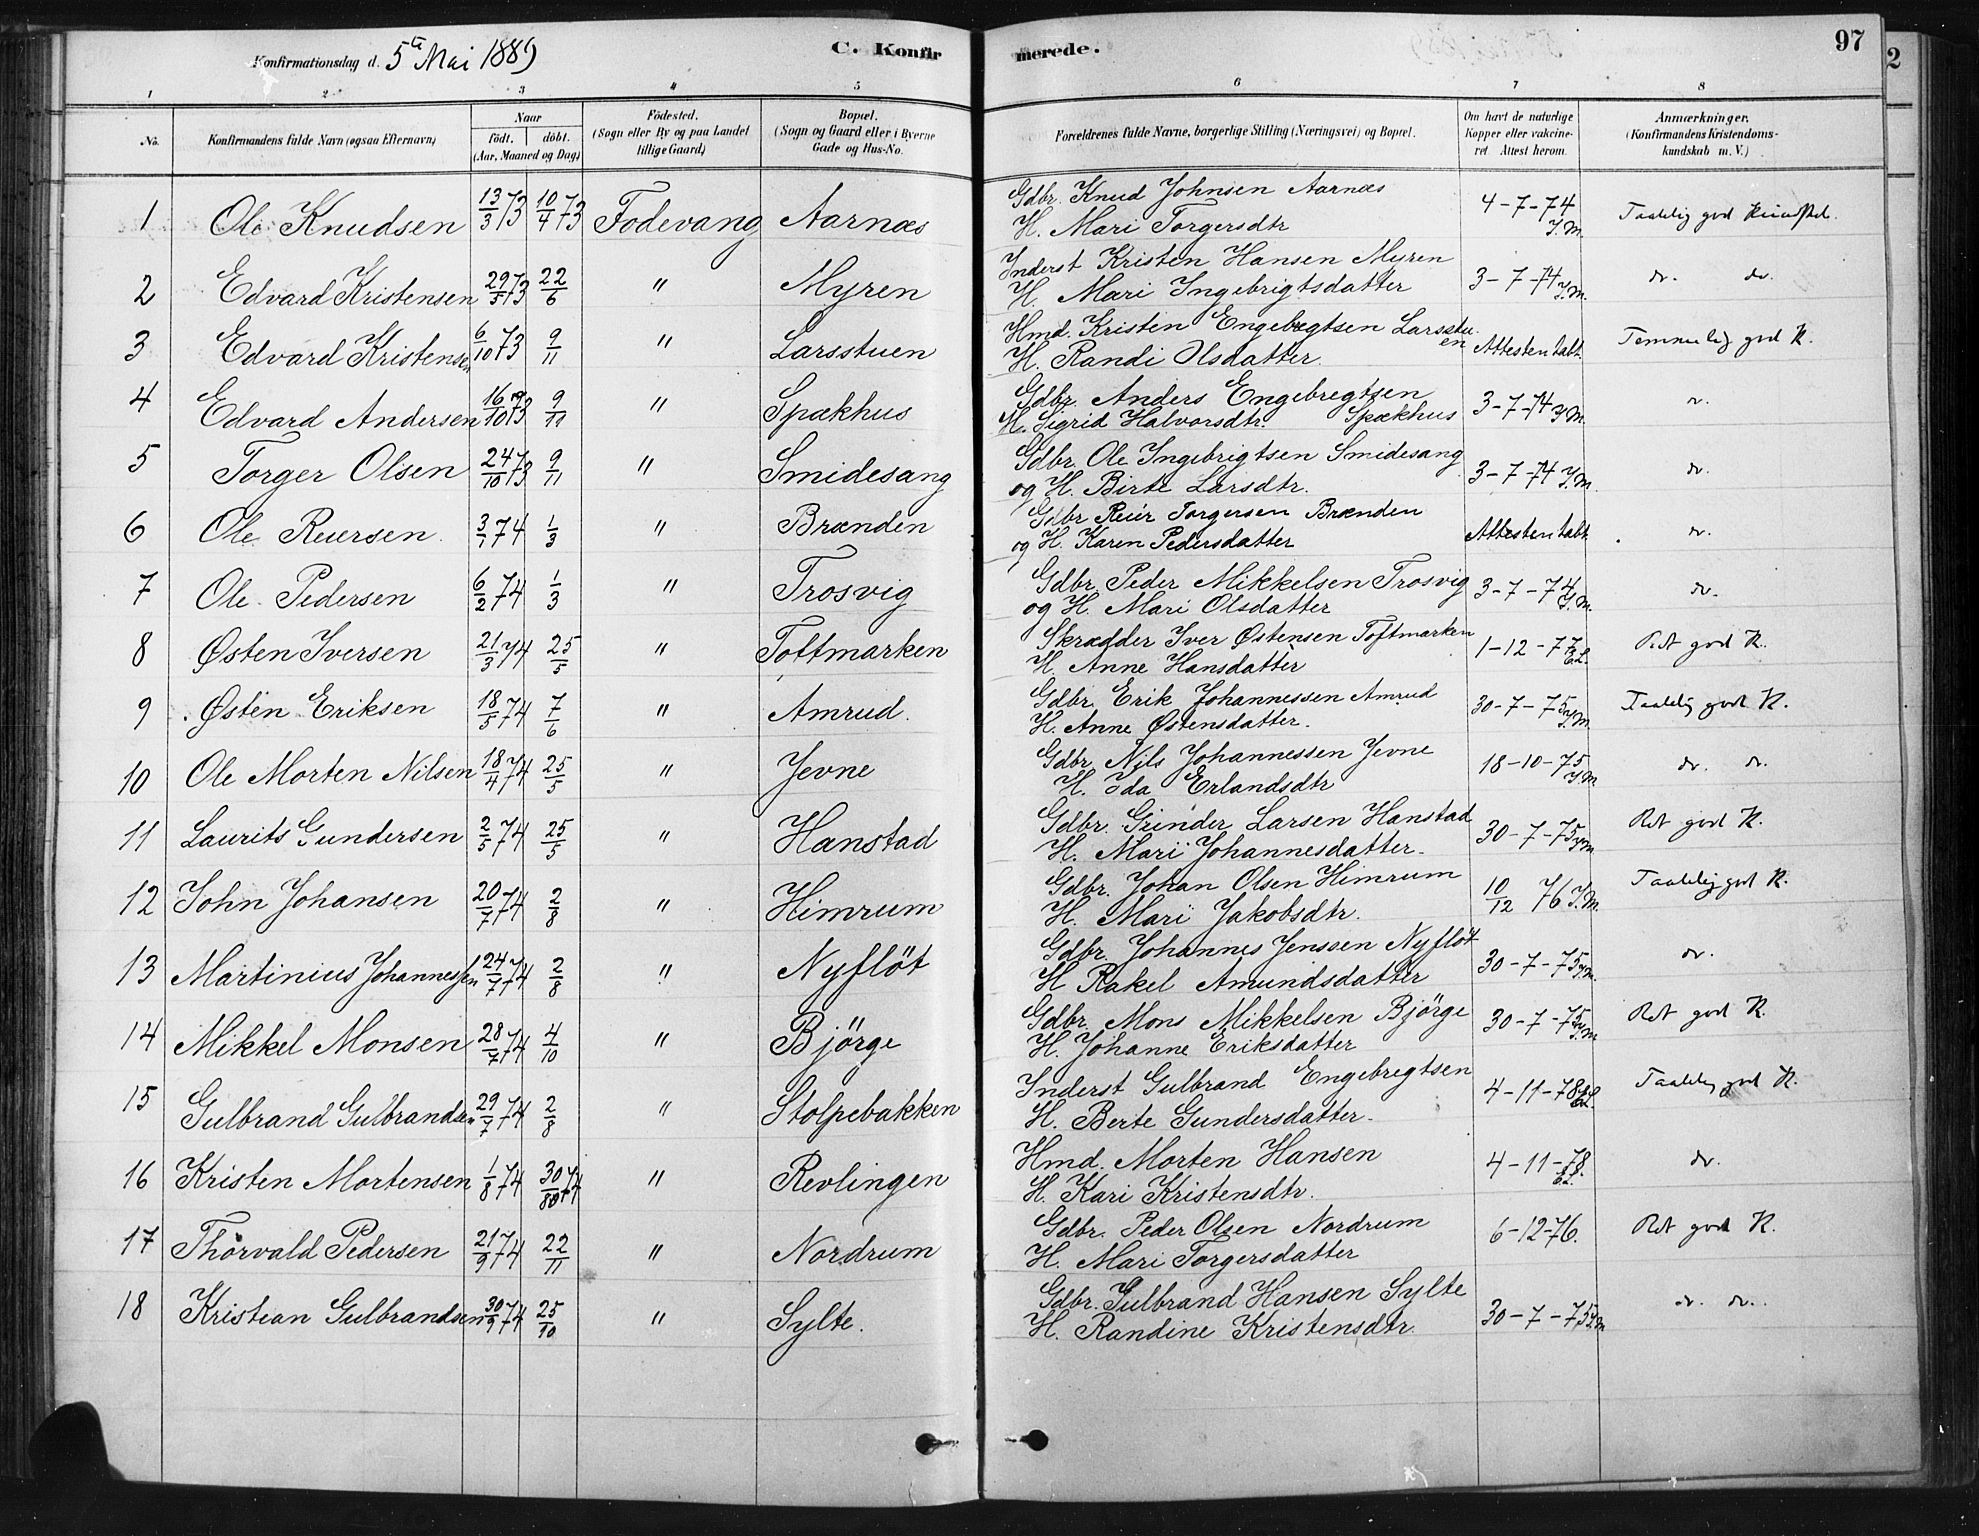 Konfirmationsdag d. 5te Mai 1889
C. Konfirmerede.
97
2
1 2 3 4 5 6 7 8
No. Konfirmandens fulde Navn (ogsaa Efternavn) Naar födt. döbt. (Aar, Maaned og Dag) Födested. (Sogn eller By og paa Landet tillige Gaard) Bopæl. (Sogn og Gaard eller i Byerne Gade og Hus-No. Forældrenes fulde Navne, borgerlige Stilling (Næringsvei) og Bopæl. Om havt de naturlige Kopper eller vakcineret Attest herom. Anmærkninger. (Konfirmandens Kristendomskundskab m. V.)
1 Ole Knudsen 13/3 73 10/4 73 Fodevang Aarnæs Gdbr. Knud Johnsen Aarnæs 4-7-74 J.M. Taalelig god Kundskab.
H. Mari Torgersdtr
2 Edvard Kristensen 29/5 73 22/6 " Myren Inderst Kristen Hansen Myren 3-7-74 J.M. do. do.
H. Mari Ingebrigtsdatter
3 Edvard Kristensen 6/10 73 9/11 " Larsstuen Hmd. Kristen Engebregtsen Larsstuen Attesten tabt Temmelig god K.
H. Randi Olsdatter.
4 Edvard Andersen 16/10 73 9/11 " Spækhus Gdbr. Anders Engebregtsen 3-7-74 J.M. do.
H. Sigrid Halvorsdtr. Spækhus
5 Torger Olsen 24/10 73 9/11 " Smidesang Gdbr. Ole Ingebrigtsen Smidesang 3-7-74 J.M. do.
og H. Birte Larsdtr.
6 Ole Reiersen. 3/1 74 1/3 " Brænden Gdbr Reiér Torgersen Brænden Attesten tabt. do.
og H. Karen Pedersdatter
7 Ole Pedersen 6/2 74 1/3 " Trosvig Gdbr. Peder Mikkelsen Trosvig 3-7-74 J.M. do.
og H. Mari Olsdatter
8 Østen Iversen 21/3 74 25/5 " Toftmarken Skrædder Iver Østensen Toftmarken 1-12-77 E.L. Ret god K.
H. Anne Hansdatter
9 Østen Eriksen 18/5 74 7/6 " Amrud. Gdbr. Erik Johannessen Amrud 30-7-75 J.M. Taalelig god K.
H. Anne Østensdatter.
10 Ole Morten Nilsen 18/4 74 25/5 " Jevne Gdbr. Nils Johannessen Jevne 18-10-75 J.M. do. do.
H. Ida Erlandsdtr
11 Laurits Gundersen 2/5 74 25/5 " Hanstad Gdbr. Gunder Larsen Hanstad 30-7-75 J.M. Ret god K.
H. Mari Johannesdatter.
12 John Johansen 20/7 74 2/8 " Himrum Gdbr. Johan Olsen Himrum 10/12 76 J.M. Taalelig god K.
H. Mari Jakobsdtr.
13 Martinius Johannessen 24/7 74 2/8 " Nyflöt Gdbr. Johannes Jenssen Nyflöt 30-7-75 J.M. do.
H Rakel Amundsdatter
14 Mikkel Monsen 28/7 74 4/10 " Bjørge Gdbr. Mons Mikkelsen Bjørge 30-7-75 J.M. Ret god K.
H. Johanne Eriksdatter
15 Gulbrand Gulbrandsen 29/7 74 2/8 " Stolpebakken Inderst Gulbrand Engebregtsen 4-11-78 E.L. Taalelig god K.
H. Berte Gundersdatter.
16 Kristen Mortensen 1/8 74 30/8 74 " Revlingen Hmd. Morten Hansen 4-11-78. E.L. do.
H. Kari Kristensdtr.
17 Thorvald Pedersen 21/9 74 22/11 " Nordrum Gdbr. Peder Olsen Nordrum 6-12-76. Ret god K.
H. Mari Torgersdatter
18 Kristian Gulbrandsen 30/9 74 25/10 " Sylte. Gdbr. Gulbrand Hansen Sylte 30-7-75 J.M. do. do.
H. Randine Kristensdtr.